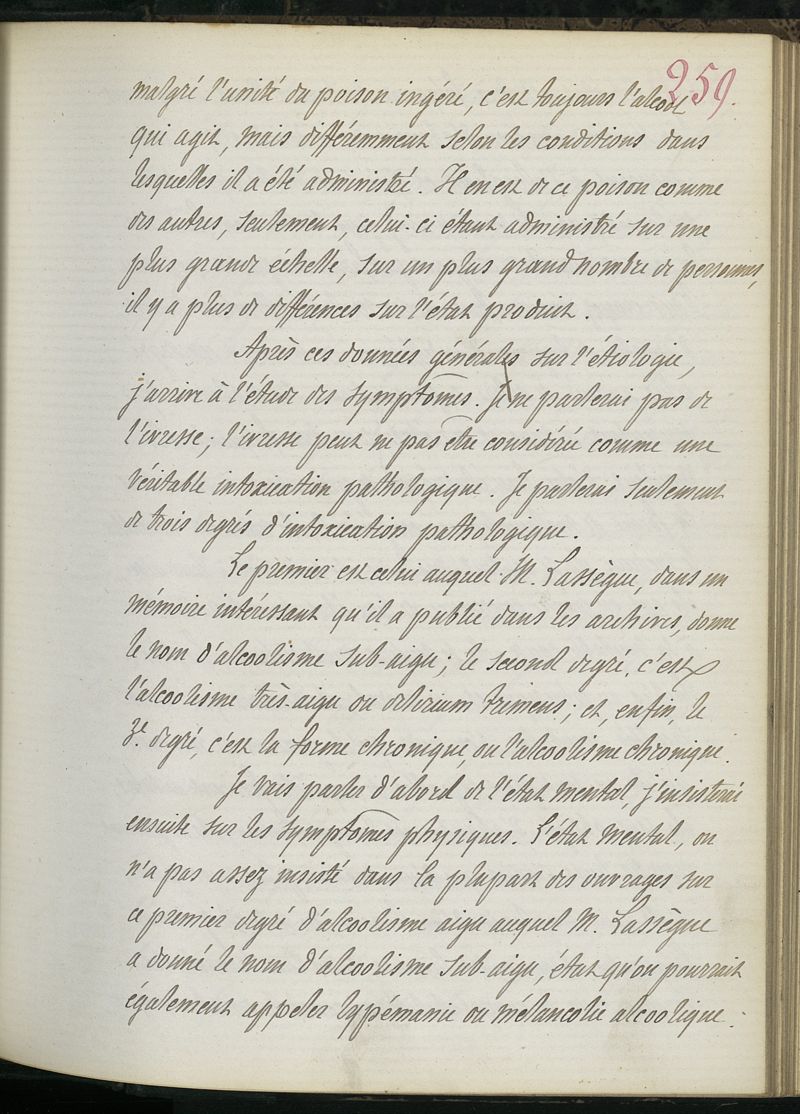 259.
malgré l'unité du poison ingéré, c'est toujours l'alcool
qui agit, mais différemment selon les conditions dans
lesquelles il a été administré. Il en est de ce poison comme
des autres, seulement, celui-ci étant administré sur une
plus grande échelle, sur un plus grand nombre de personnes,
il y a plus de différences sur l'état produit.
Après ces données générales sur l'étiologie,
j'arrive à l'étude des symptômes. Je ne parlerai pas de
l'ivresse; l'ivresse peut ne pas être considérée comme une
véritable intoxication pathologique. Je parlerai seulement
de trois degrés d'intoxication pathologique.
Le premier est celui auquel M. Lassègue, dans un
mémoire intéressant qu'il a publié dans les archives, donne
le nom d'alcoolisme sub-aigu; le second degré, c'est
l'alcoolisme très-aigu ou delirium tremens; et, enfin, le
3e. degré, c'est la forme chronique, ou l'alcoolisme chronique.
Je vais parler d'abord de l'état mental, j'insisterai
ensuite sur les symptômes physiques. L'état mental, on
n'a pas assez insisté dans la plupart des ouvrages sur
ce premier degré d'alcoolisme aigu auquel M. Lassègue
a donné le nom d'alcoolisme sub-aigu, état qu'on pourrait
également appeler lypémanie ou mélancolie alcoolique.